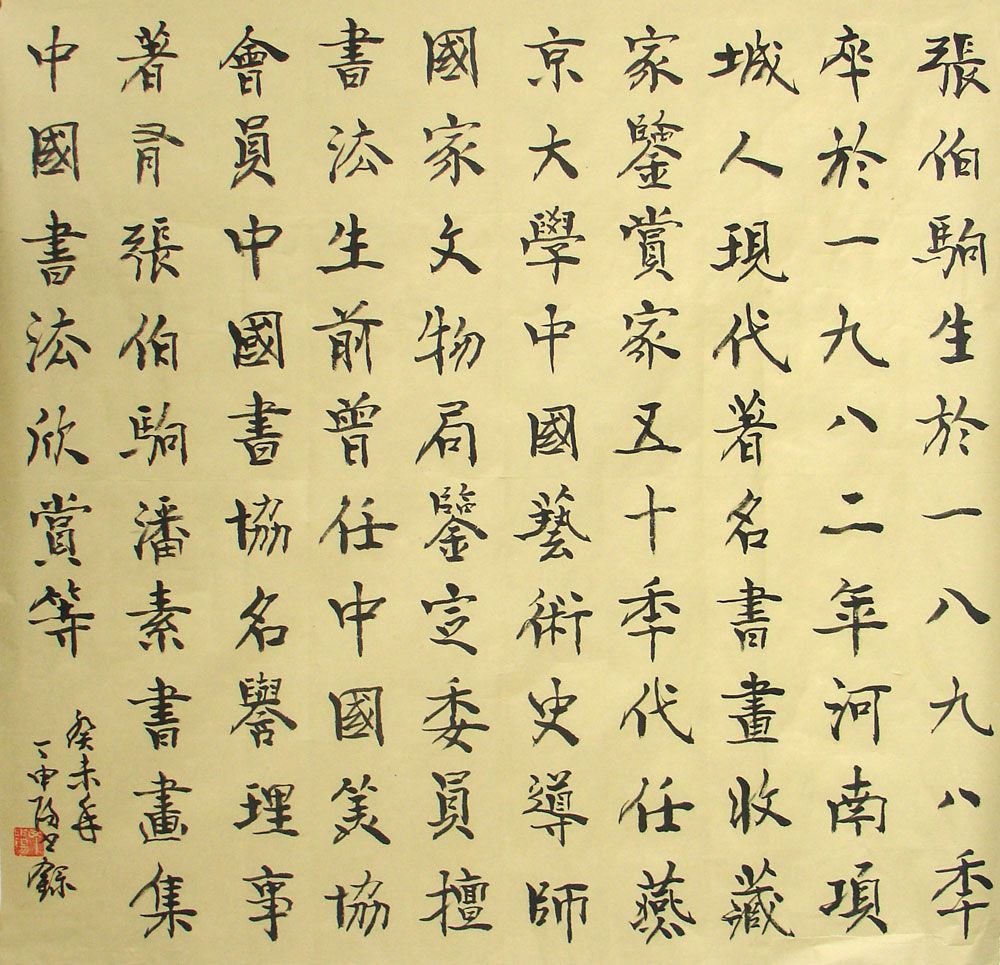 張伯駒生於一八九八秊
卒於一九八二年河南項
城人現代著名書畫收藏
家鑒賞家五十秊代任燕
京大學中國藝術史導師
國家文物局鑒定委員擅
書法生前曾任中國美協
會員中國書協名譽理事
著有張伯駒潘素書畫集
中國書法欣賞等
癸未年
丁申陽書錄